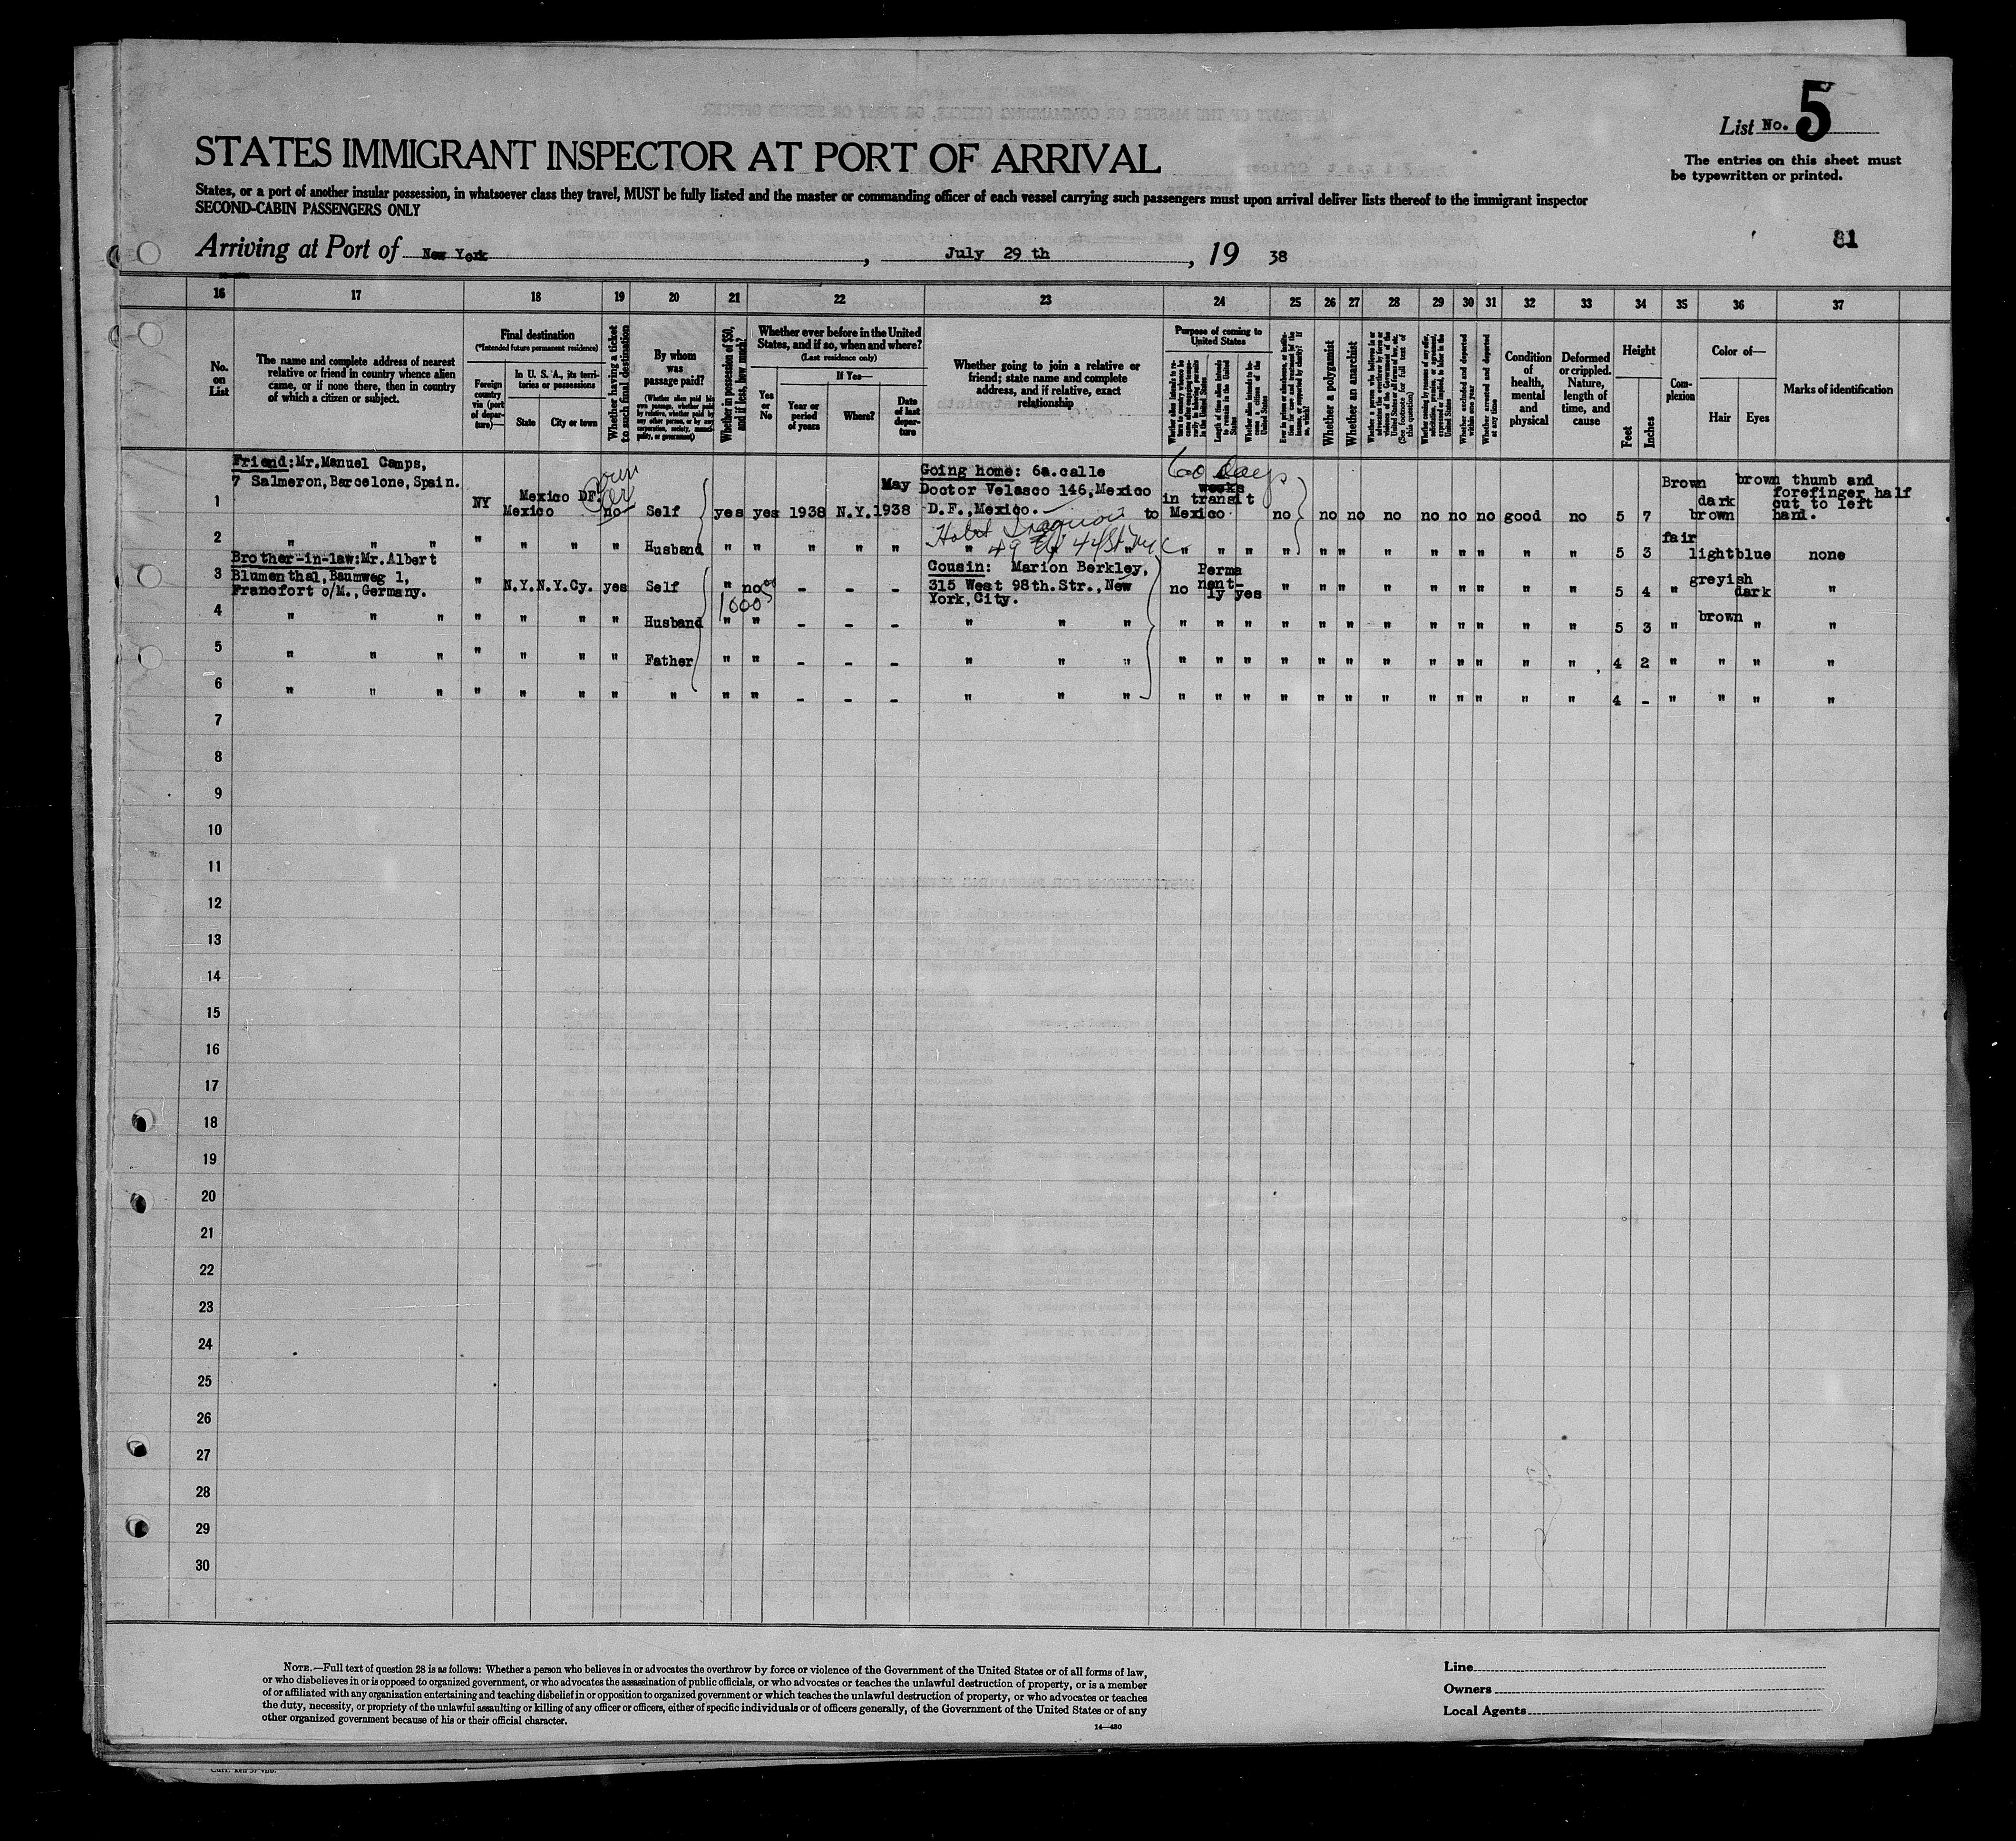 List No. 5
The entries on this sheet must
be typewritten or printed.
STATES IMMIGRANT INSPECTOR AT PORT OF ARRIVAL
States, or a port of another insular possession, in whatsoever class they travel, MUST be fully listed and the master or commanding officer of each vessel carrying such passengers must upon arrival deliver lists thereof to the immigrant inspector
SECOND-CABIN PASSENGERS ONLY
81
Arriving at Port of New York, July 29 th, 19 38
16 17 18 19 20 21 22 23 24 25 26 27 28 29 30 31 32 33 34 35 36 37
No. on List
The name and complete address of nearest
relative or friend in country whence alien
came, or if none there, then in country
of which a citizen or subject.
Final destination
(*Intended future permanent residence)
Foreign country via (port of departure)—
In U. S. A., its territories or possessions
State
City or town
Whether having a ticket to such final destination
By whom was passage paid?
(Whether alien paid his own passage, whether paid by relative, whether paid by any other person, or by any corporation, society, municipality, or government)
Whether in possession of $50, and if less, how much?
Whether ever before in the United
States, and if so, when and where?
(Last residence only)
Yes or No
If Yes—
Year or period of years
Where?
Date of last departure
Whether going to join a relative or
friend; state name and complete
address, and if relative, exact
relationship
Purpose of coming to United States
Length of time alien intends to remain in the United States
Whether alien intends to become a citizen of the United States
Whether a polygamist
Whether an anarchist
Whether excluded and deported within one year
Whether arrested and deported at any time
Condition of health, mental and physical
Deformed or crippled. Nature, length of time, and cause
Height
Feet
Inches
Complexion
Color of—
Hair
Eyes
Marks of identification
Friend: Mr. Manuel Camps,
7 Salmeron, Barcelone, Spain.
1 NY Mexico Mexico DF. no Self yes yes 1938 N.Y. May 1938
Going home: 6a. calle
Doctor Velasco 146, Mexico
D.F., Mexico.
60 days
weeks
in transit
to Mexico no no no no no no no good no 5 7 Brown dark brown brown thumb and
forefinger half
cut to left
hand.
2 " " " " " " " Husband " " " " " " " " " " " " " " " " " " " " 5 3 fair light blue none
49 E 44 St NYC
Brother-in-law: Mr. Albert
Blumenthal, Baumweg 1,
Francfort o/M., Germany.
3 " N.Y. N.Y.Cy. yes Self " no - - -
1000
Cousin: Marion Berkley,
315 West 98th. Str., New
York, City.
no Permanent-
ly yes " " " " " " " " " 5 4 " greyish dark "
4 " " " " " " " Husband " " - - - " " " " " " " " " " " " " " " 5 3 " brown " "
5 " " " " " " " Father " " - - - " " " " " " " " " " " " " " " 4 2 " " " "
6 " " " " " " " " " " - - - " " " " " " " " " " " " " " " 4 - " " " "
7
8
9
10
11
12
13
14
15
16
17
18
19
20
21
22
23
24
25
26
27
28
29
30
NOTE.—Full text of question 28 is as follows: Whether a person who believes in or advocates the overthrow by force or violence of the Government of the United States or of all forms of law,
or who disbelieves in or is opposed to organized government, or who advocates the assassination of public officials, or who advocates or teaches the unlawful destruction of property, or is a member
of or affiliated with any organization entertaining and teaching disbelief in or opposition to organized government or which teaches the unlawful destruction of property, or who advocates or teaches
the duty, necessity, or propriety of the unlawful assaulting or killing of any officer or officers, either of specific individuals or of officers generally, of the Government of the United States or of any
other organized government because of his or their official character.
14—480
Line
Owners
Local Agents